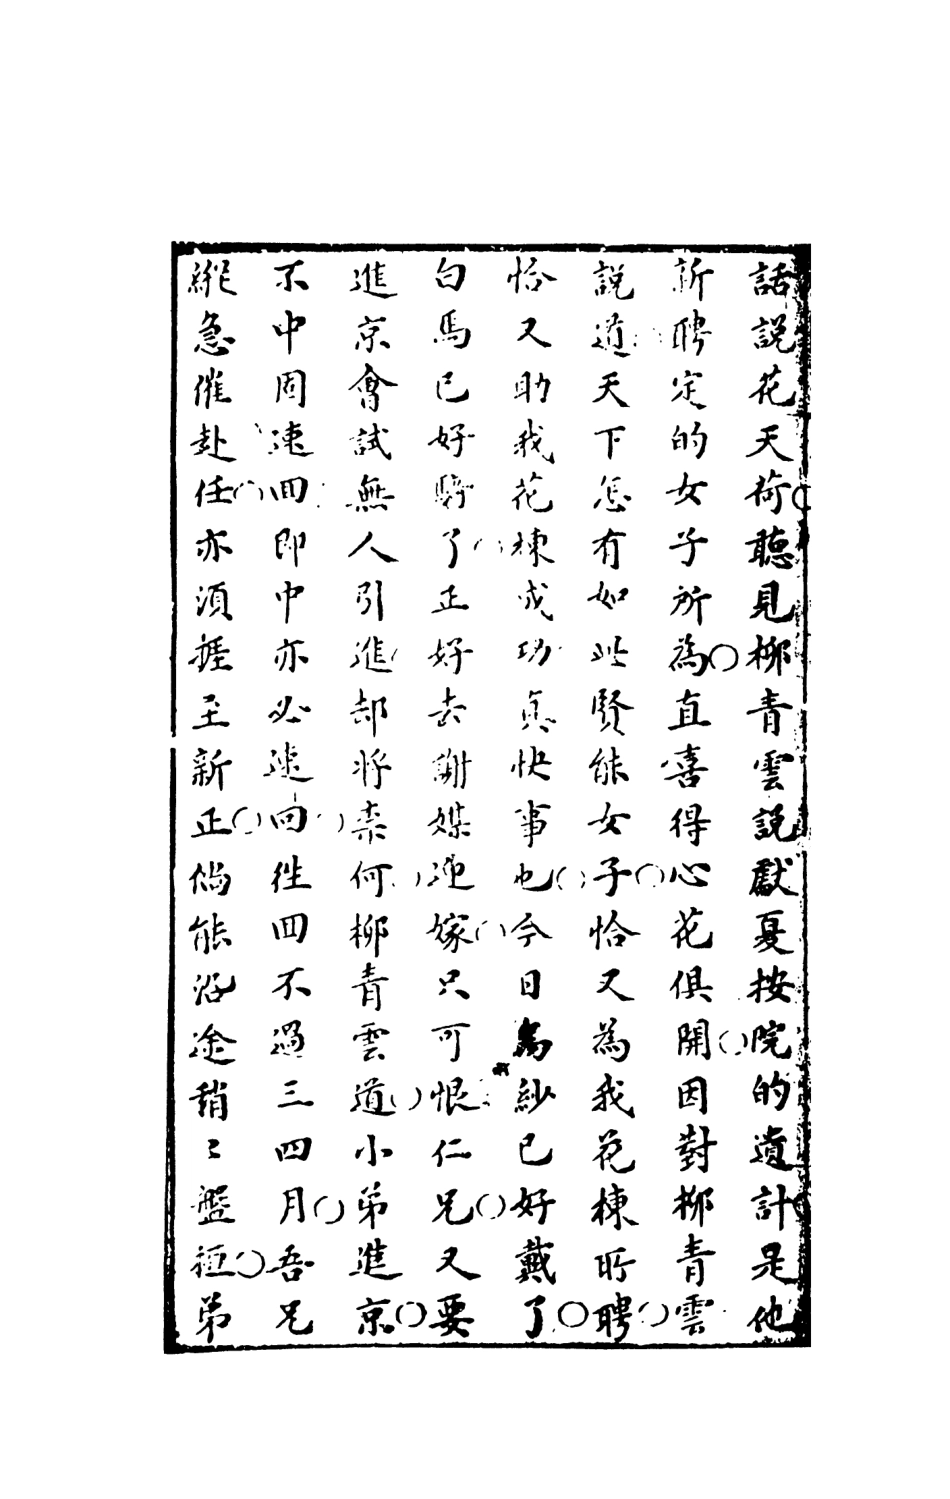 話說花天荷聽見柳青雲說獻夏按院的遺計是他
新聘定的女子所為直喜得心花俱開因對柳青雲
說道天下怎有如此賢能女子恰又為我花棟所聘
恰又助我花棟成功真快事也今日烏紗已好戴了
白馬已好騎了正好去謝媒迎嫁只可恨仁兄又要
進京會試無人引進却將柰何柳青雲道小弟進京
不中固速回即中亦必速回往回不過三四月吾兄
縱急催赴任亦須捱至新正倘能沿途稍〻盤桓弟